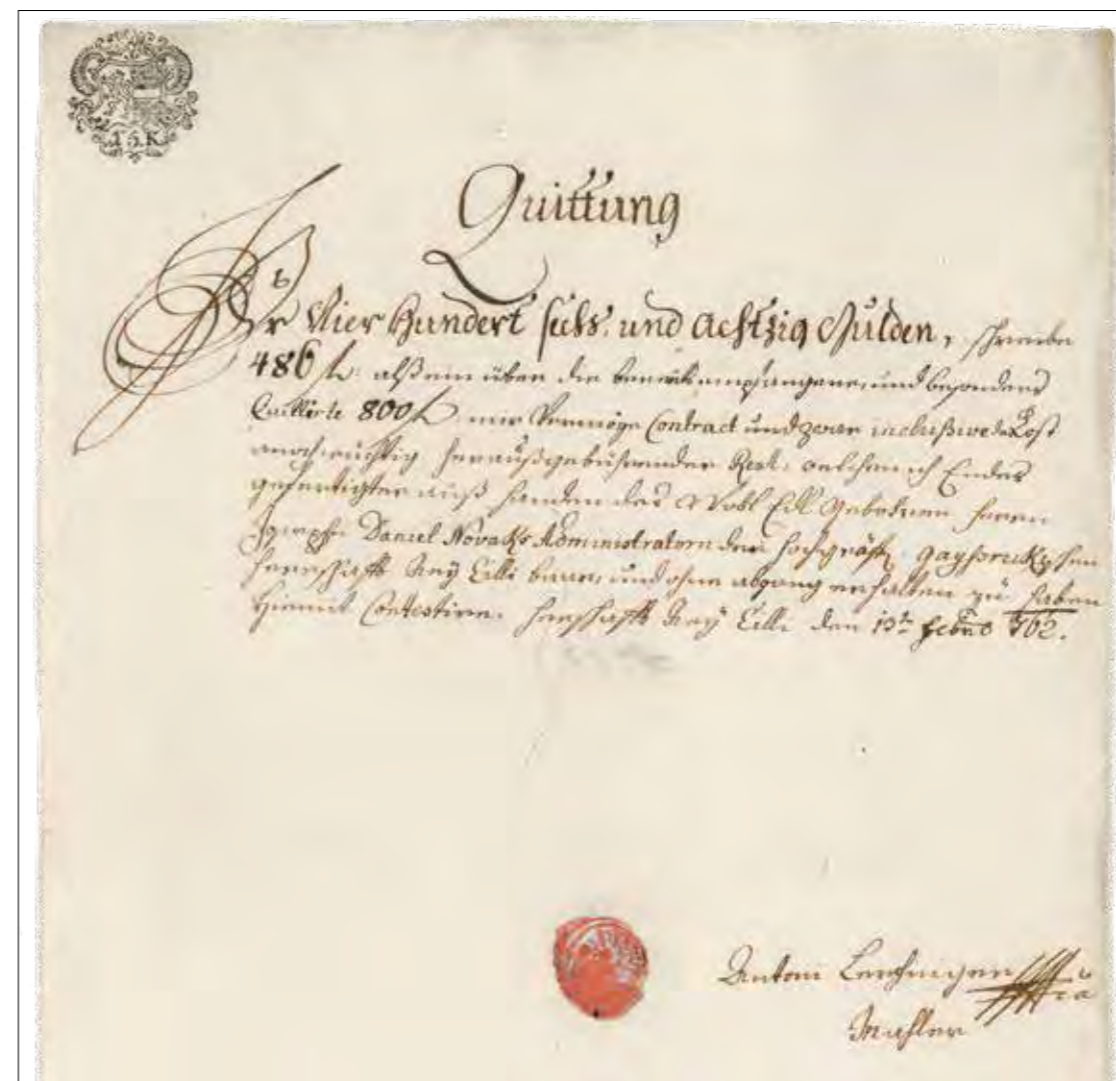 15 K
Quittung
Pr Vier Hundert sechs und Achtzig Gulden, schreibe
486 f. alß ein über die bereits empfangene, und besonders
Quittirte 800 f. mir Vermöge Contract und zwar inclusive der Kost
herausgebührender Rest, welchen ich Endes
gefertigter auß Handen des Wohl Edl Gebohrnen Herrn
Joseph Daniel Novaks Administratorn der Hochgräfl. Gaysruckischen
Herrschafft Ney Cilli baar, und ohne abgang erhalten zu haben
hiemit Contestire. Herrschafft Ney Cilli den 13ten Febro 762.
Antoni Lerchinger
Mahler